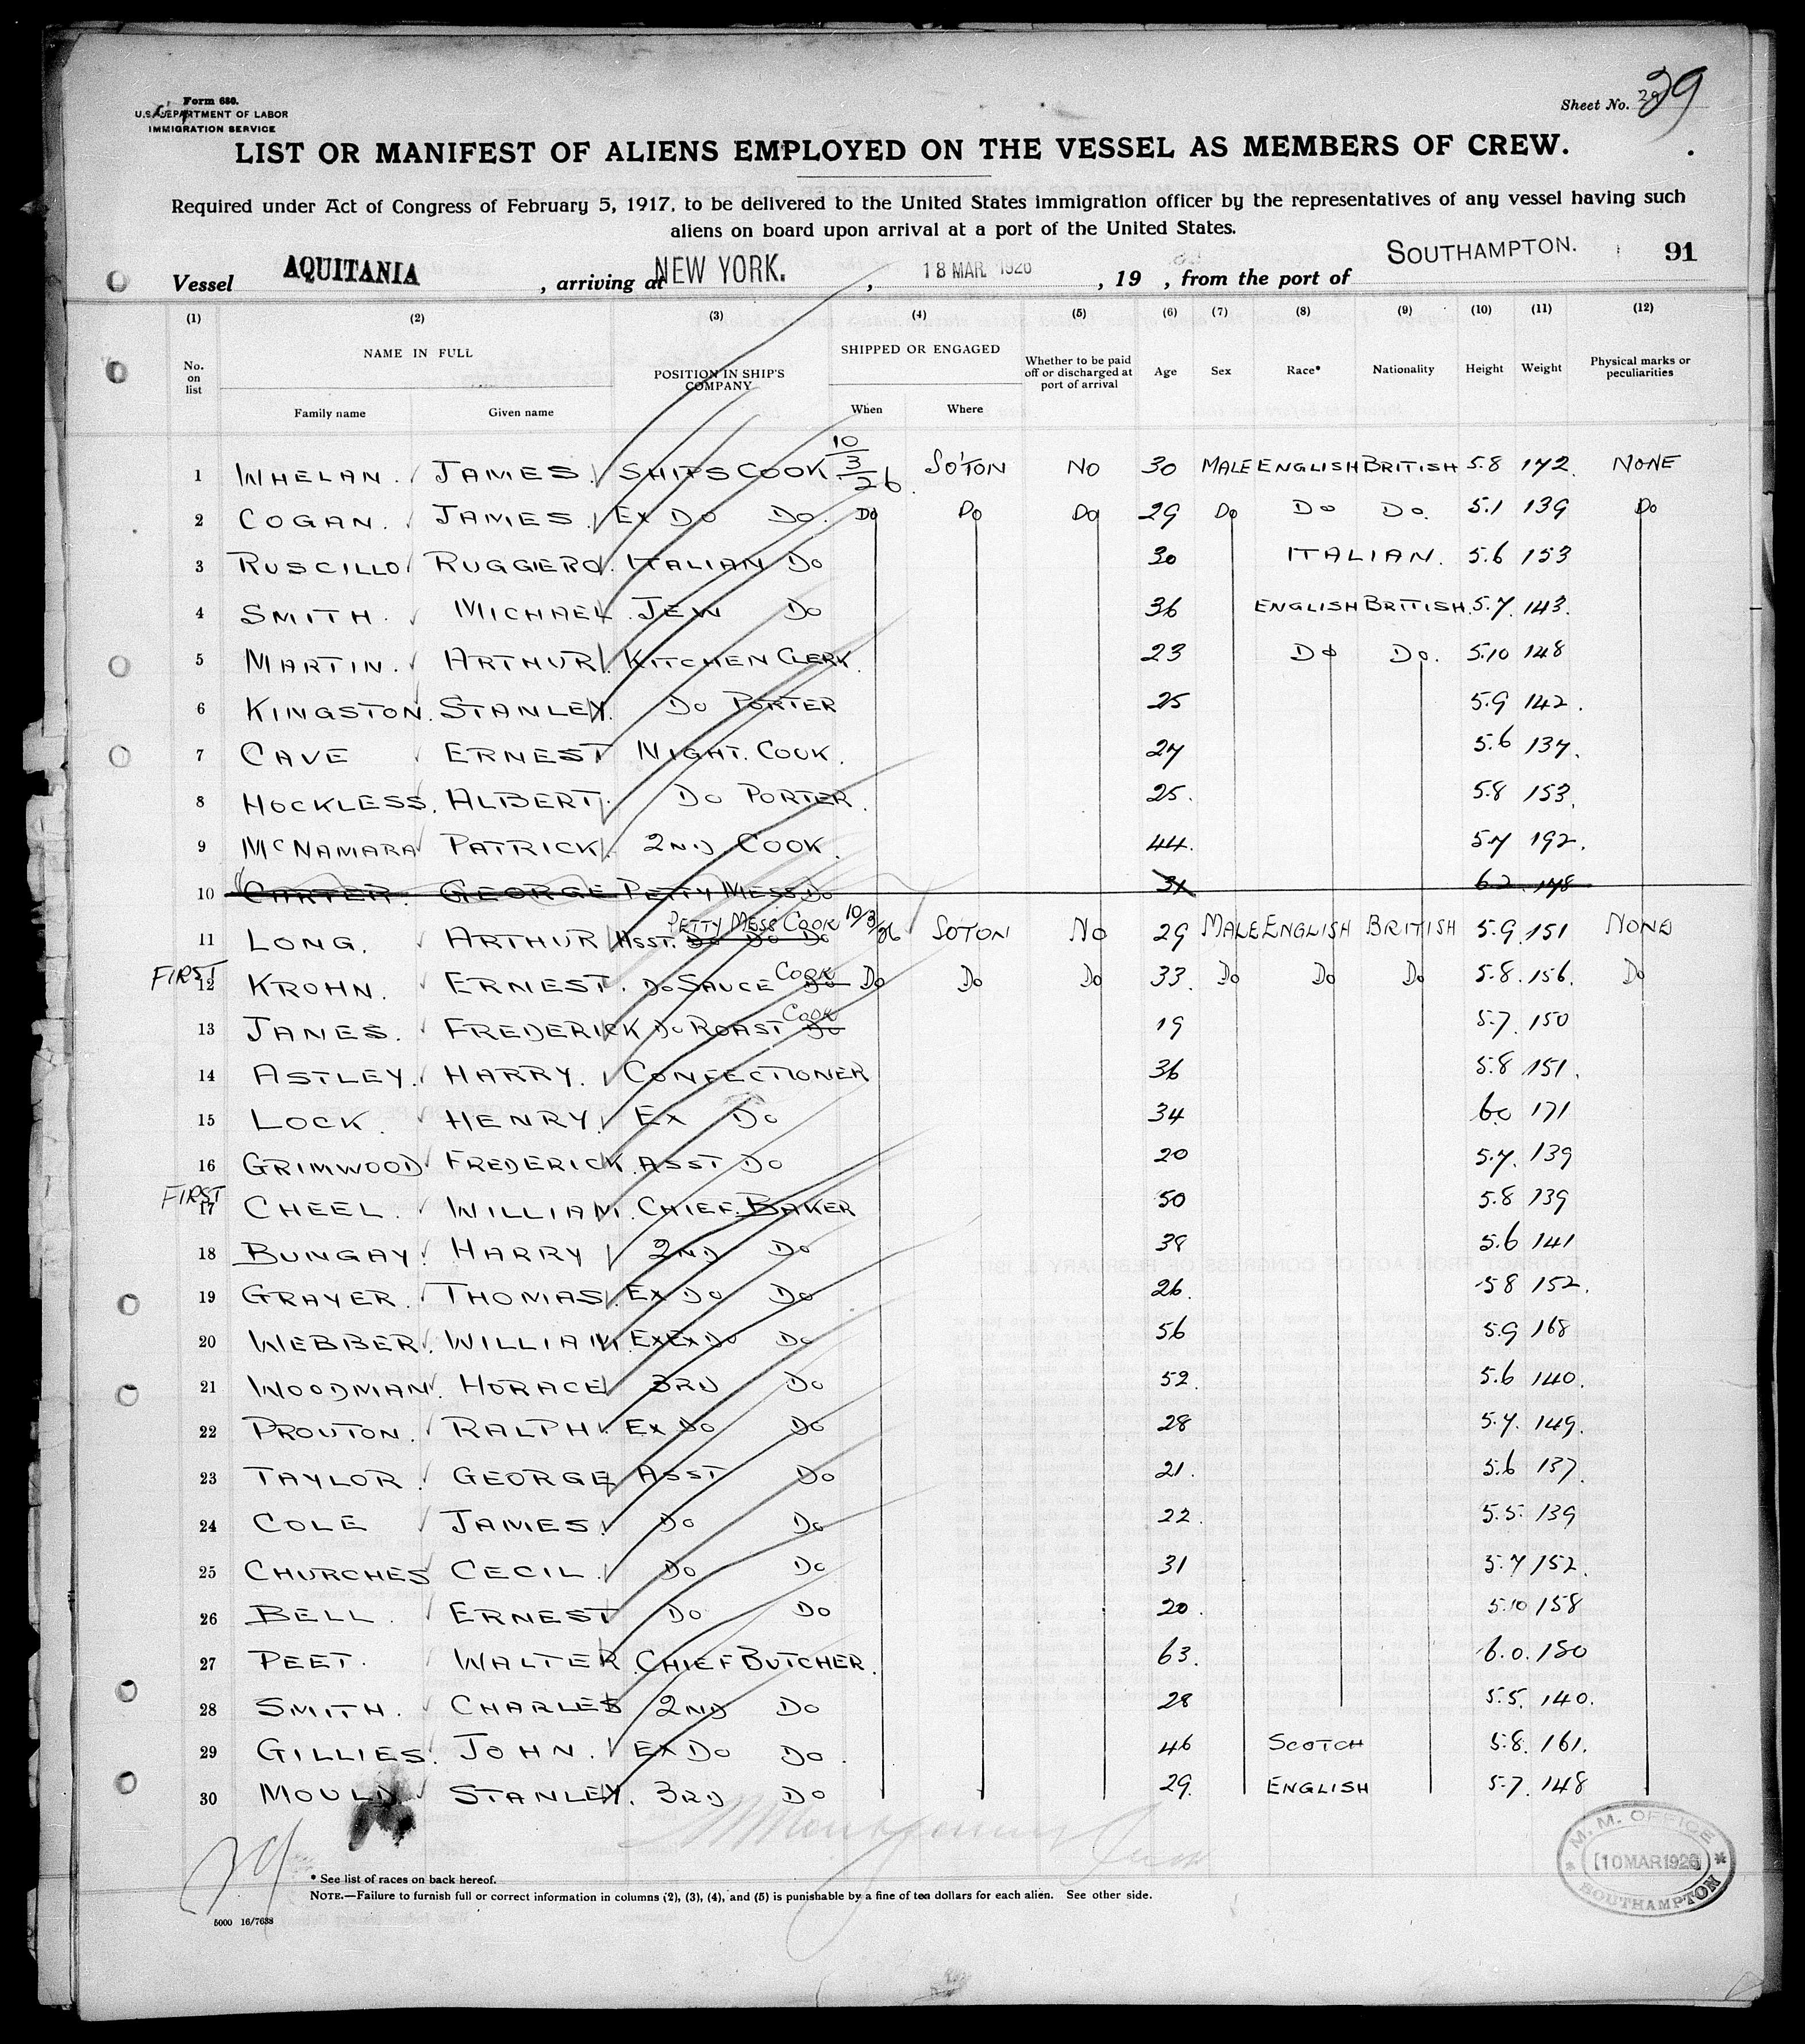 Form 680.
U.S. DEPARTMENT OF LABOR
IMMIGRATION SERVICE
Sheet No. 29
LIST OR MANIFEST OF ALIENS EMPLOYED ON THE VESSEL AS MEMBERS OF CREW.
Required under Act of Congress of February 5, 1917, to be delivered to the United States immigration officer by the representatives of any vessel having such
aliens on board upon arrival at a port of the United States.
Vessel AQUITANIA, arriving at NEW YORK., 18 MAR. 1926, 19 , from the port of SOUTHAMPTON. 91
(1) (2) (3) (4) (5) (6) (7) (8) (9) (10) (11) (12)
No. on list NAME IN FULL Family name Given name POSITION IN SHIP'S COMPANY SHIPPED OR ENGAGED When Where Whether to be paid off or discharged at port of arrival Age Sex Race* Nationality Height Weight Physical marks or peculiarities
1 WHELAN. JAMES. SHIPS COOK 10/3/26. SO'TON NO 30 MALE ENGLISH BRITISH 5.8 172. NONE
2 COGAN. JAMES. EX DO DO. DO DO DO 29 DO DO DO. 5.1 139 DO
3 RUSCILLO RUGGIERO. ITALIAN DO 30 ITALIAN. 5.6 153
4 SMITH. MICHAEL. JEW DO 36 ENGLISH BRITISH. 5.7. 143.
5 MARTIN. ARTHUR. KITCHEN CLERK. 23 DO DO. 5.10 148
6 KINGSTON. STANLEY. DO PORTER 25 5.9 142.
7 CAVE ERNEST NIGHT. COOK. 27 5.6 137.
8 HOCKLESS. ALBERT. DO PORTER. 25. 5.8 153.
9 McNAMARA PATRICK. 2ND COOK. 44. 5.7 192.
10 CARTER. GEORGE PETTY MESS DO 31 6.2 178
PETTY MESS COOK
11 LONG. ARTHUR ASST. DO DO DO 10/3/26 SOTON NO 29 MALE ENGLISH BRITISH 5.9. 151 NONE
FIRST 12 KROHN. ERNEST. DO SAUCE DO COOK DO DO DO 33. DO DO DO 5.8. 156. DO
13 JANES. FREDERICK DO ROAST DO COOK 19 5.7. 150
14 ASTLEY. HARRY. CONFECTIONER 36 5.8 151.
15 LOCK. HENRY. EX DO 34 6.0 171
16 GRIMWOOD. FREDERICK. ASST DO 20 5.7. 139
FIRST 17 CHEEL. WILLIAM. CHIEF. BAKER 50 5.8 139
18 BUNGAY. HARRY 2ND DO 38 5.6 141
19 GRAYER. THOMAS. EX DO DO 26. 5.8 152.
20 WEBBER. WILLIAM. EX EX DO DO 56 5.9 168
21 WOODMAN. HORACE 3RD DO 52. 5.6 140.
22 PROUTON. RALPH. EX DO DO 28 5.7. 149.
23 TAYLOR. GEORGE ASST DO 21. 5.6 137.
24 COLE JAMES. DO DO 22. 5.5. 139
25 CHURCHES CECIL. DO DO 31 5.7 152.
26 BELL. ERNEST DO DO 20. 5.10 158
27 PEET. WALTER. CHIEF BUTCHER. 63. 6.0. 180
28 SMITH. CHARLES 2ND DO 28 5.5. 140.
29 GILLIES. JOHN. EX DO DO. 46 SCOTCH 5.8. 161.
30 MOULD STANLEY. 3RD DO 29. ENGLISH 5.7. 148
29
* See list of races on back hereof.
NOTE.—Failure to furnish full or correct information in columns (2), (3), (4), and (5) is punishable by a fine of ten dollars for each alien. See other side.
5000 16/7638
M. M. OFFICE
10 MAR 1926
SOUTHAMPTON